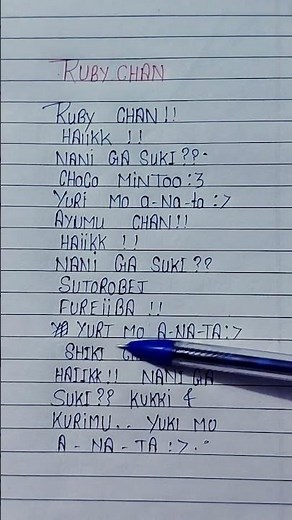 RUBY CHAN
RUBY CHAN!!
HAiiKK !!
NANi GA SUKi??
CHOCO MiNTOO :3
YURi MO a-Na-ta :>
AYUMU CHAN!!
HAiiKK !!
NANi GA SUKi??
SUTOROBEJ
FUREiiBA !!
YURT MO A-NA-TA:>
SHIKI
HAIJKK!! NANI GA
SUKI?? KUKKI 4
KURIMU.. YUKI MO
A - NA - TA :>..